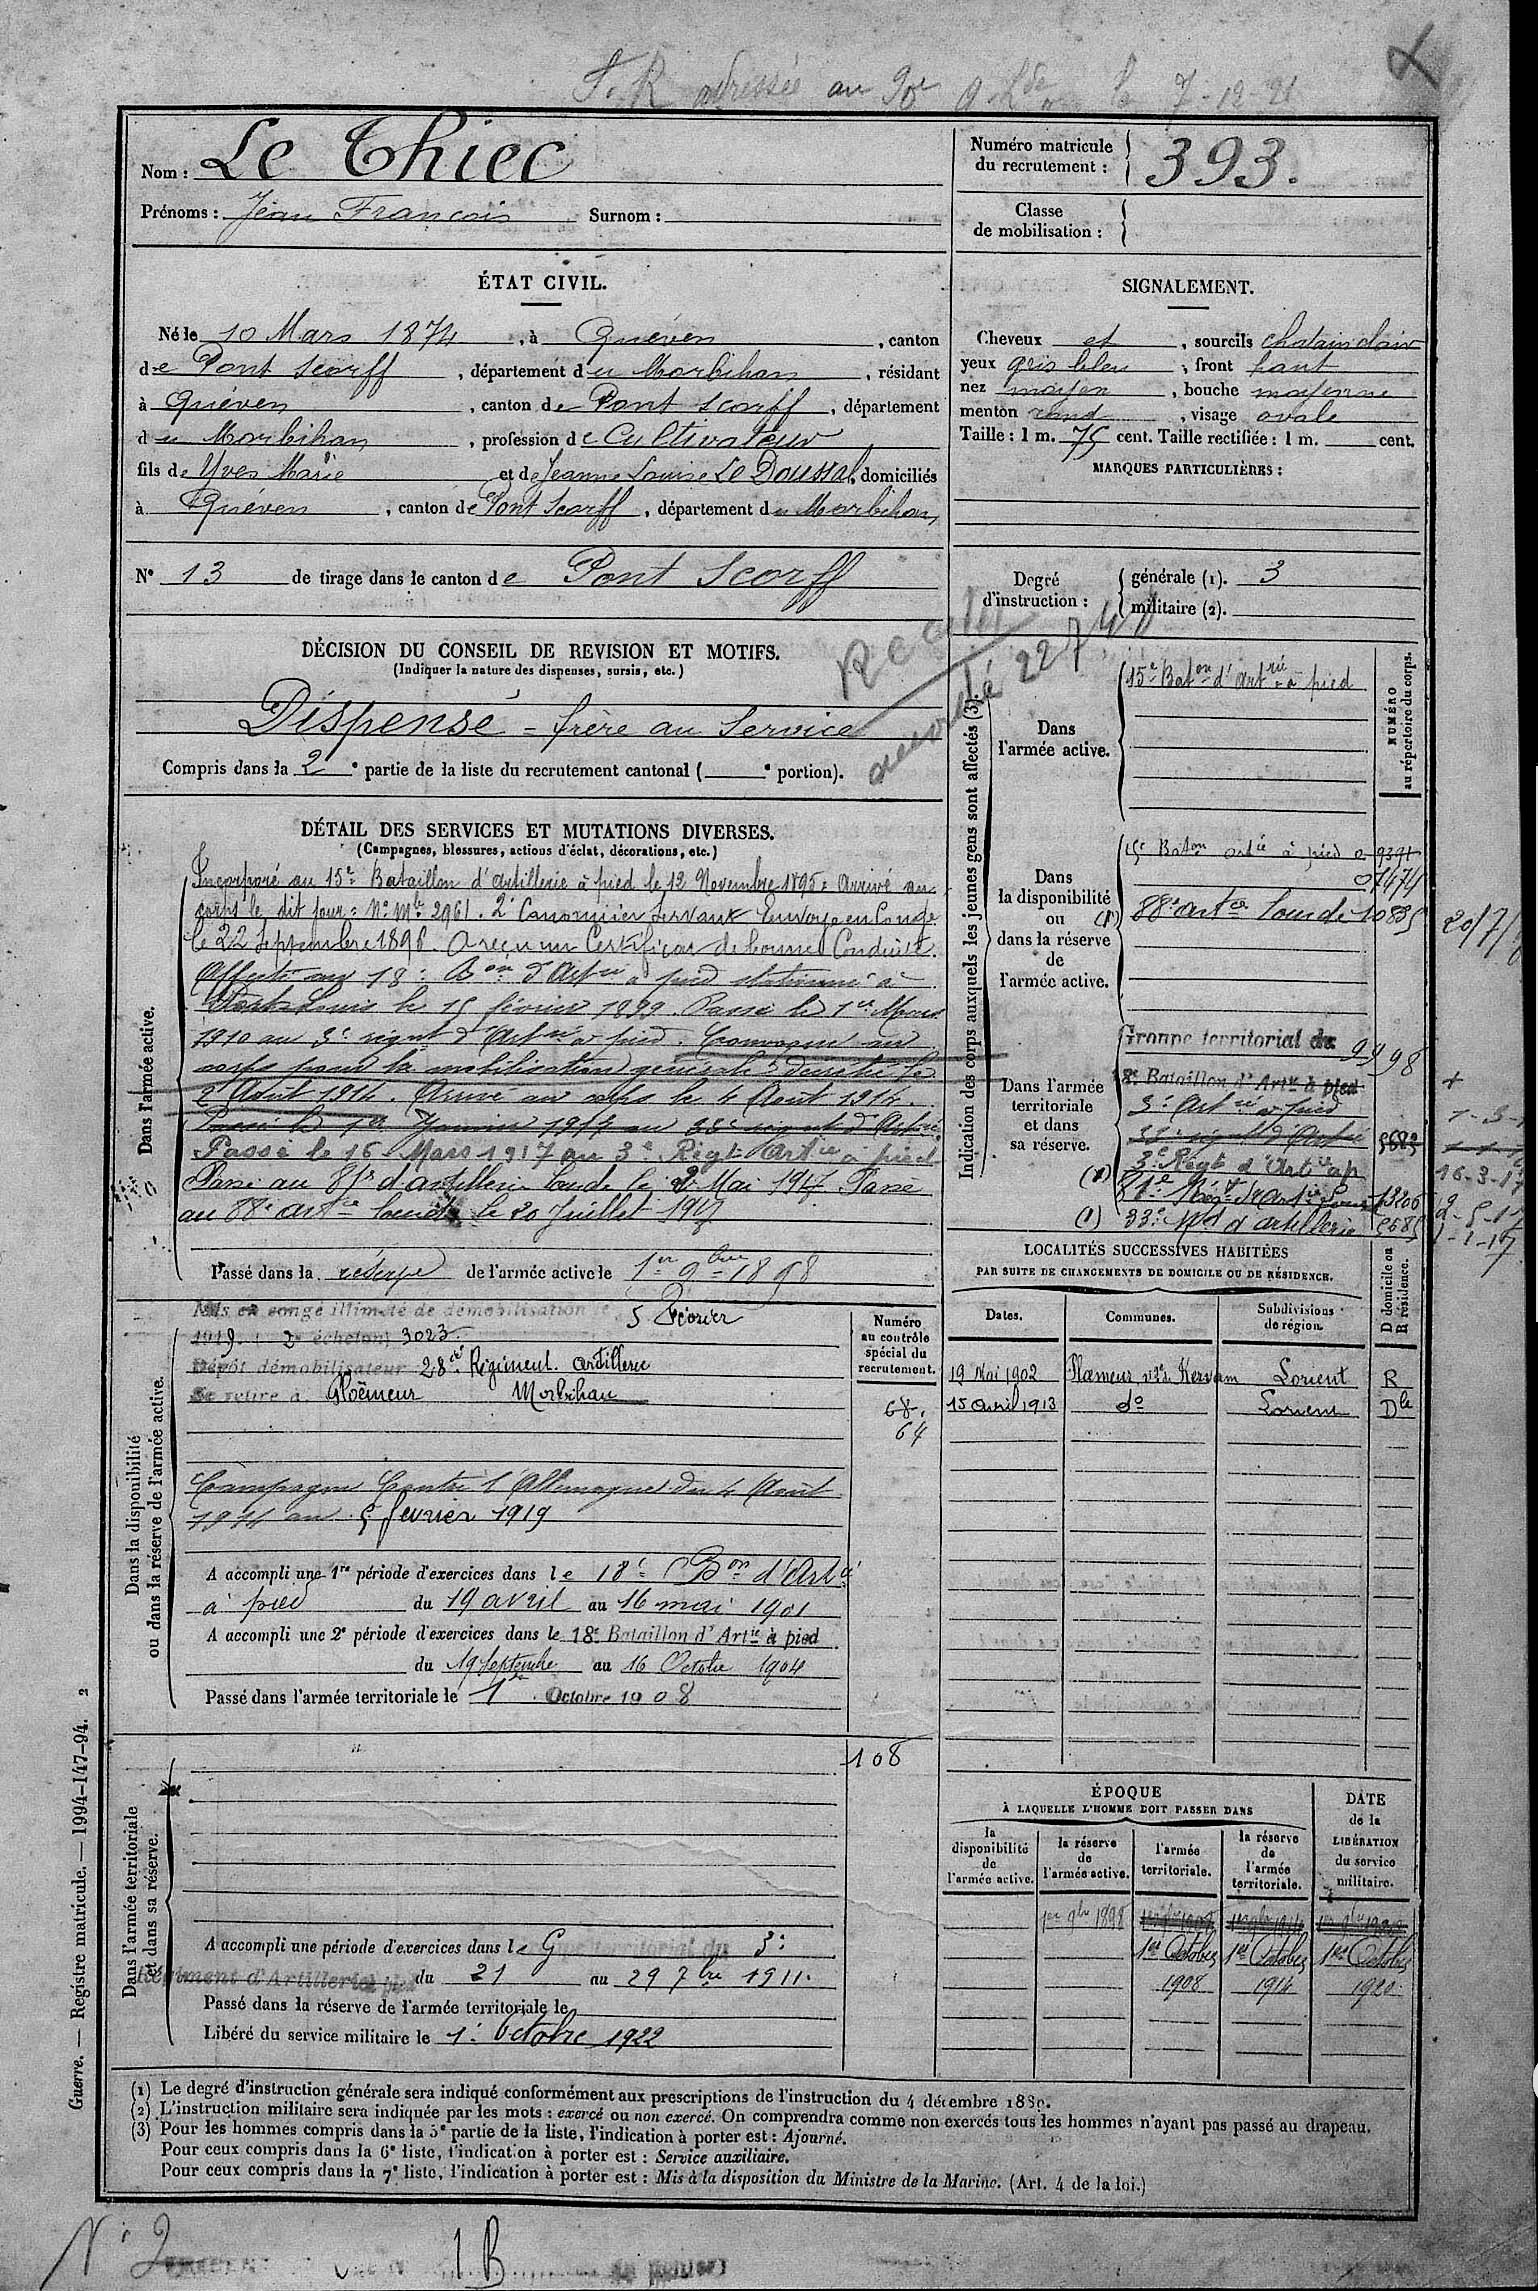 7-12-21
Nom : Le Thiec
Prénoms : Jean François Surnom :
Numéro matricule
du recrutement : 393.
Classe
de mobilisation :
ÉTAT CIVIL.
Né le 10 Mars 1874, à Quéven, canton
de Pont Scorff, département du Morbihan, résidant
à Quéven, canton de Pont Scorff, département
du Morbihan, profession de Cultivateur
fils de Yves Marie et de Jeanne Louise Le Doussal, domiciliés
à Quéven, canton de Pont Scorff, département du Morbihan
N° 13 de tirage dans le canton de Pont Scorff
SIGNALEMENT.
Cheveux et, sourcils chatain clair
yeux gris bleu, front haut
nez moyen, bouche moyenne
menton rond, visage ovale
Taille : 1 m. 75 cent. Taille rectifiée : 1 m. cent.
MARQUES PARTICULIÈRES :
Degré
d'instruction :
générale (1). 3
militaire (2).
DÉCISION DU CONSEIL DE REVISION ET MOTIFS.
(Indiquer la nature des dispenses, sursis, etc.)
Dispensé - frère au service
Compris dans la 2e partie de la liste du recrutement cantonal ( e portion).
DÉTAIL DES SERVICES ET MUTATIONS DIVERSES.
(Campagnes, blessures, actions d'éclat, décorations, etc.)
Dans l'armée active.
Incorporé au 15e Bataillon d'artillerie à pied le 12 Novembre 1895. Arrivé au
corps le dit jour. No Mle 2961. 2e Canonnier Servant. Envoyé en Congé
le 22 Septembre 1896. A reçu un Certificat de bonne Conduite.
Affecté au 18e Bon d'Artie à pied stationné à
Port-Louis le 15 février 1899. Passé le 1er Mars
1910 au 3e régnt d'Artie à pied. Convoqué au
corps pour la mobilisation générale décrétée le
2 Août 1914. Arrivé au corps le 4 Août 1914.
Passé le 1er Janvier 1917 au 33e régnt d'Artie
Passé le 16 Mars 1917 au 3e Régt Artie à pied
Passé au 81e d'artillerie lourde le 2 Mai 1917 Passé
au 88e artie lourde le 20 Juillet 1917
Passé dans la réserve de l'armée active le 1er 9bre 1898
Indication des corps auxquels les jeunes gens sont affectés (3).
Dans
l'armée active.
15e Baton d'Artrie à pied
NUMÉRO
au répertoire du corps.
Dans
la disponibilité
ou
dans la réserve
de
l'armée active.
15e Baton artie à pied 9391
07474
(1) 88e artie lourde 10835
20/7/
Dans l'armée
territoriale
et dans
sa réserve.
Groupe territorial du 9998
8e Bataillon d'Artie à pied
3e Artie à pied
33e régnt d'Artie 5685
3e Régt d'Artie à p
16-3-17
(1) 81e Régt d'Artie Lourde 13206
2-5-17
(1) 33e Rgt d'artillerie 5585
1-1-17
LOCALITÉS SUCCESSIVES HABITÉES
PAR SUITE DE CHANGEMENTS DE DOMICILE OU DE RÉSIDENCE.
D domicile ou
R résidence.
Dates. Communes. Subdivisions
de région.
19 Mai 1902 Ploemeur, vge Kervam Lorient R
15 avril 1913 do Lorient Dle
Dans la disponibilité
ou dans la réserve de l'armée active.
Mis en congé illimité de démobilisation le 5 Février
1919. 2e échelon 3023.
Dépôt démobilisateur 28e Régiment Artillerie
Se retire à Ploëmeur Morbihan
Numéro
au contrôle
spécial du
recrutement.
68.
64
Campagne Contre l'Allemagne du 4 Août
1914 au 5 février 1919
A accompli une 1re période d'exercices dans le 18e Bon d'Artie
à pied du 19 avril au 16 mai 1901
A accompli une 2e période d'exercices dans le 18e Bataillon d'Artie à pied
du 19 Septembre au 16 Octobre 1904
Passé dans l'armée territoriale le 1er Octobre 1908
108
Dans l'armée territoriale
et dans sa réserve.
A accompli une période d'exercices dans le G territorial du 3e
Régiment d'Artillerie à pied du 21 au 29 7bre 1911.
Passé dans la réserve de l'armée territoriale le
Libéré du service militaire le 1er Octobre 1922
ÉPOQUE
À LAQUELLE L'HOMME DOIT PASSER DANS
la
disponibilité
de
l'armée active.
la réserve
de
l'armée active.
l'armée
territoriale.
la réserve
de
l'armée
territoriale.
DATE
de la
LIBÉRATION
du service
militaire.
1er 9bre 1898
1er Octobre 1er Octobre 1er Octobre
1908 1914 1920
(1) Le degré d'instruction générale sera indiqué conformément aux prescriptions de l'instruction du 4 décembre 1889.
(2) L'instruction militaire sera indiquée par les mots : exercé ou non exercé. On comprendra comme non exercés tous les hommes n'ayant pas passé au drapeau.
(3) Pour les hommes compris dans la 5e partie de la liste, l'indication à porter est : Ajourné.
Pour ceux compris dans la 6e liste, l'indication à porter est : Service auxiliaire.
Pour ceux compris dans la 7e liste, l'indication à porter est : Mis à la disposition du Ministre de la Marine. (Art. 4 de la loi.)
Guerre. — Registre matricule. — 1994-147-94. 2
N° 2
1B